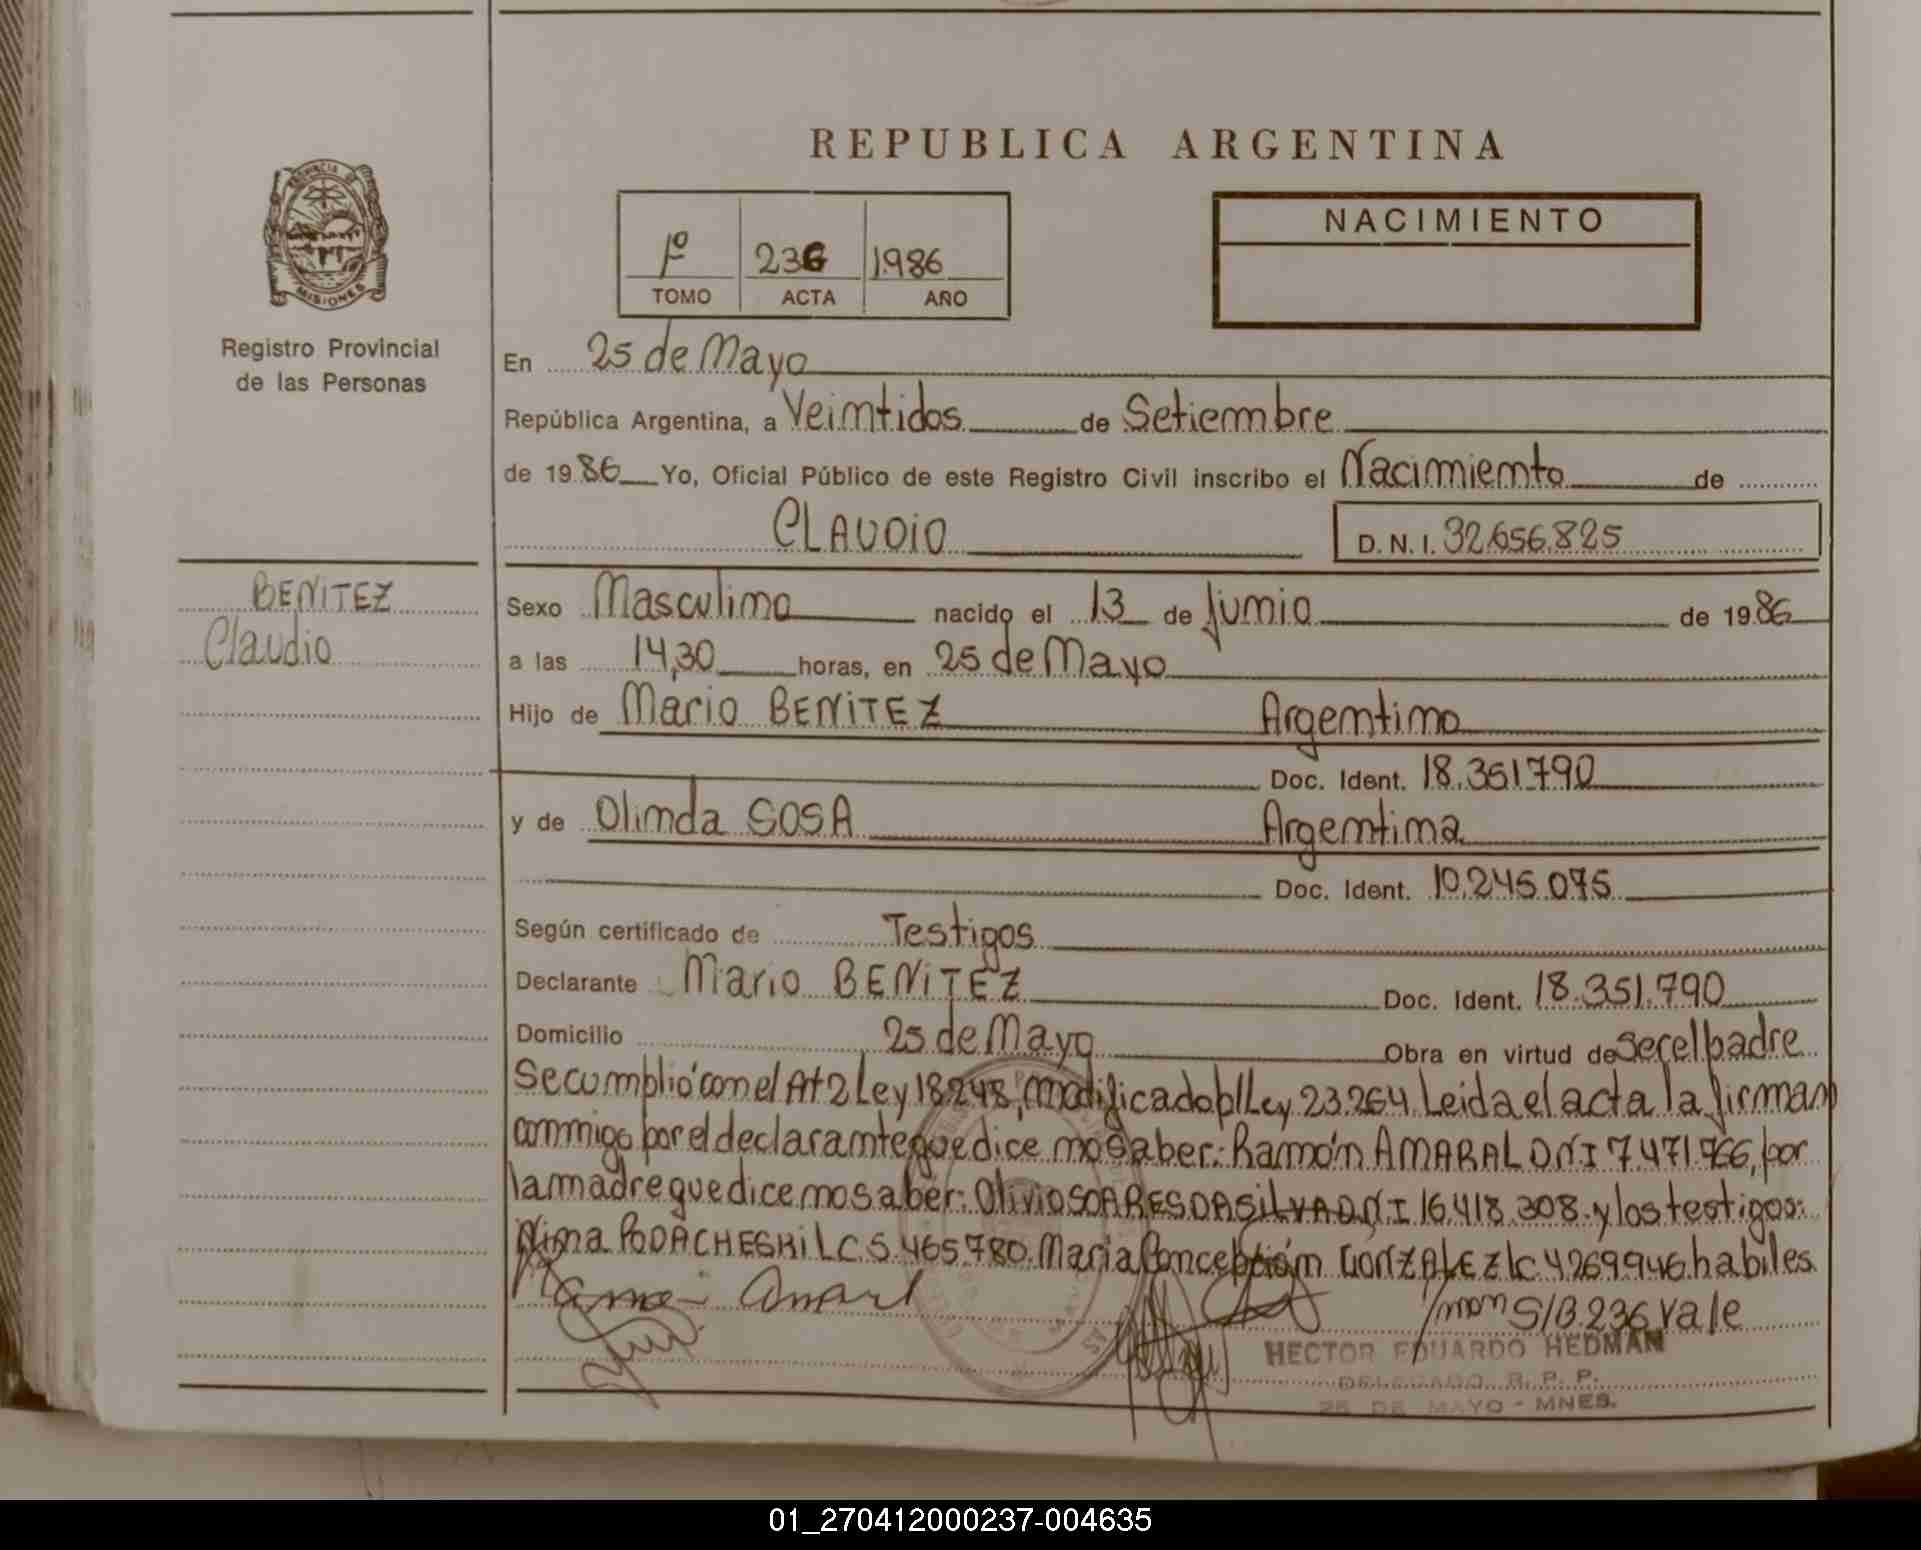 REPUBLICA ARGENTINA
PROVINCIA DE
MISIONES
Registro Provincial
de las Personas
1º 236 1986
TOMO ACTA AÑO
NACIMIENTO
En 25 de Mayo
República Argentina, a Veimtidos de Setiembre
de 1986 Yo, Oficial Público de este Registro Civil inscribo el Nacimiemto de
CLAUDIO D.N.I. 32.656.825
BENITEZ
Claudio
Sexo Masculimo nacido el 13 de Jumio de 1986
a las 14,30 horas, en 25 de Mayo
Hijo de Mario BENITEZ Argemtimo
Doc. Ident. 18.351.790
y de Olimda SOSA Argemtima
Doc. Ident. 10.245.075
Según certificado de Testigos
Declarante Mario BENITEZ Doc. Ident. 18.351.790
Domicilio 25 de Mayo Obra en virtud de Ser el padre
Se cumplió con el Art 2 Ley 18.248, modificado p/ Ley 23.264 Leida el acta la firman
commigo por el declaramte que dice mo saber: Ramón AMARAL DNI 7.471.766, por
la madre que dice mo saber: Olivio SOARES DA SILVA DNI 16.418.308 y los testigos:
Nima PODACHESKI LC 5.465.780. Maria Concepción GONZALEZ LC 4269946 habiles
S/B.236 Vale
HECTOR EDUARDO HEDMAN
DELEGADO R. P. P.
25 DE MAYO - MNES.
01_270412000237-004635